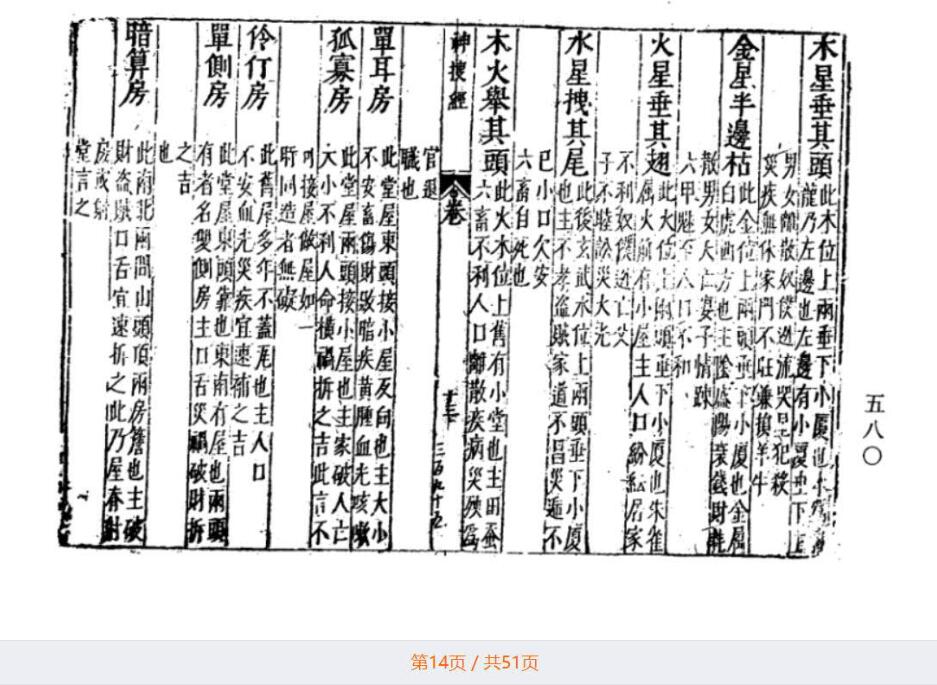 木星垂其頭
此木位上兩垂下小厦也木
龍乃左邊也左邊有小厦垂下
男女離散奴僕逃流哭星犯殺
災疾血休家門不旺嫌損羊牛
金星半邊枯
此金位上兩頭垂下小厦也金屬
白虎西方也主陰盛陽衰錢財耗
散男女夭亡妻子情踈
六甲魅至人口不和
火星垂其翅
此火位上兩頭垂下小厦也朱雀
屬火前有小屋主人口紛紜居家
不利奴僕逃亡父
子不睦訟災火光
水星拽其尾
此後玄武水位上兩頭垂下小厦
也主不孝盜賊家道不昌災遁不
已小口欠安
六畜自死也
木火舉其頭
此火木位上舊有小堂也主田蚕
六畜不利人口離散疾病災殃爲
神搜經
合卷
十三
三百九十五
官退
職也
單耳房
此堂屋東頭接小屋反向也主大小
不安畜傷財敗暗疾黃腫血光咳嗽
孤寡房
此堂屋兩頭接小屋也主家破人亡
大小不利人命橫禍拆之吉此言不
可接屋做屋如一
時同造者無礙
伶仃房
此舊屋多年不蓋瓦也主人口
不安血光災疾宜速補之吉
單側房
此堂屋東頭靠也東南有屋也兩頭
有者名雙側房主口舌災禍破財拆
之吉
也
暗算房
此南北兩間山頭頂兩房簷也主破
財盜賊口舌宜速拆之此乃屋脊射
房或射
堂言之
五八〇
第14页 / 共51页